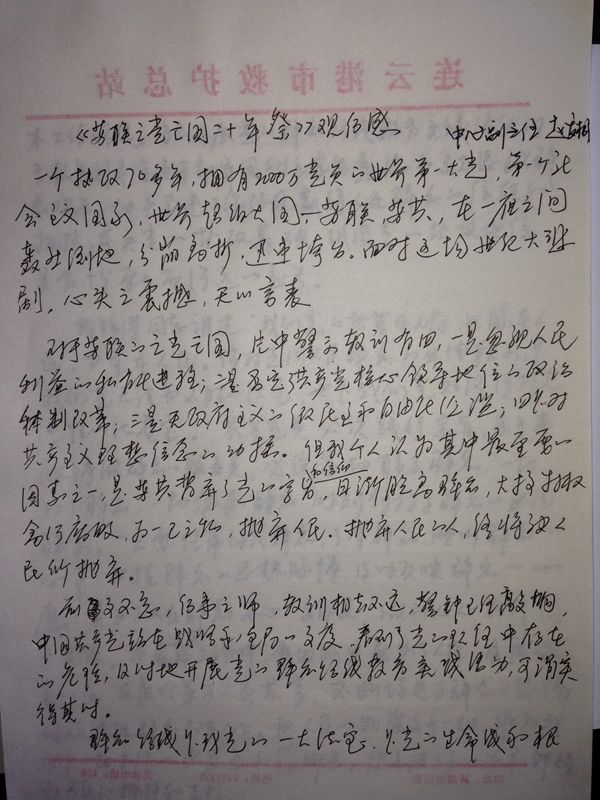 连云港市救护总站
《苏联亡党亡国二十年祭》观后感 中心副主任
一个执政70多年,拥有2000万党员的世界第一大党,第一个社
会主义国家,世界超级大国—苏联,苏共,在一夜之间
轰然倒地,分崩离析,迅速垮台。面对这场世纪大悲
剧,心头之震撼,无以言表
对于苏联的亡党亡国,片中警示教训有四,一是忽视人民
利益的私有化进程;二是否定共产党核心领导地位的政治
体制改革;三是无政府主义的假民主和自由化泛滥;四是对
共产主义理想信念的动摇。但我个人认为其中最重要的
因素之一,是苏共背弃了党的宗旨和信仰,日渐脱离群众,大搞特权
贪污腐败,为一己之私,抛弃人民。抛弃人民的人,终将被人
民所抛弃。
前事不忘,后事之师,教训相去不远,警钟已经敲响,
中国共产党站在的高度,看到了党的队伍中存在
的危险,及时地开展党的群众路线教育实践活动,可谓实
得其时。
群众路线是我党的一大法宝,是党的生命线和根